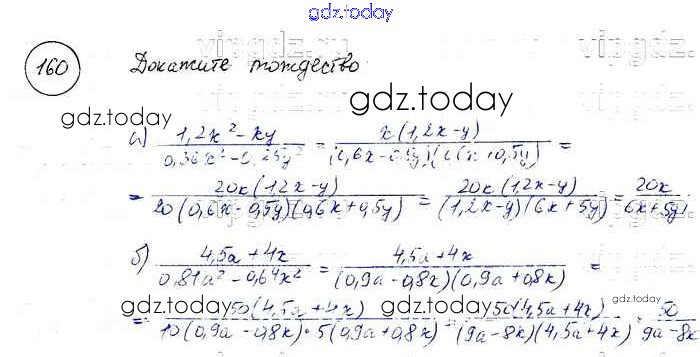 gdz.today
160 Докажите тождество
gdz.today
gdz.today
а) (1,2x² - xy)/(0,36x² - 0,25y²) = x(1,2x-y)/((0,6x-0,5y)(0,6x+0,5y)) =
= 20x(1,2x-y)/(20(0,6x-0,5y)(0,6x+0,5y)) = 20x(1,2x-y)/((1,2x-y)(6x+5y)) = 20x/(6x+5y).
б) (4,5a+4x)/(0,81a² - 0,64x²) = (4,5a+4x)/((0,9a-0,8x)(0,9a+0,8x)) =
gdz.today
gdz.today
gdz.today
= 50(4,5a+4x)/(10(0,9a-0,8x)·5(0,9a+0,8x)) = 50(4,5a+4x)/((9a-8x)(4,5a+4x)) = 50/(9a-8x)